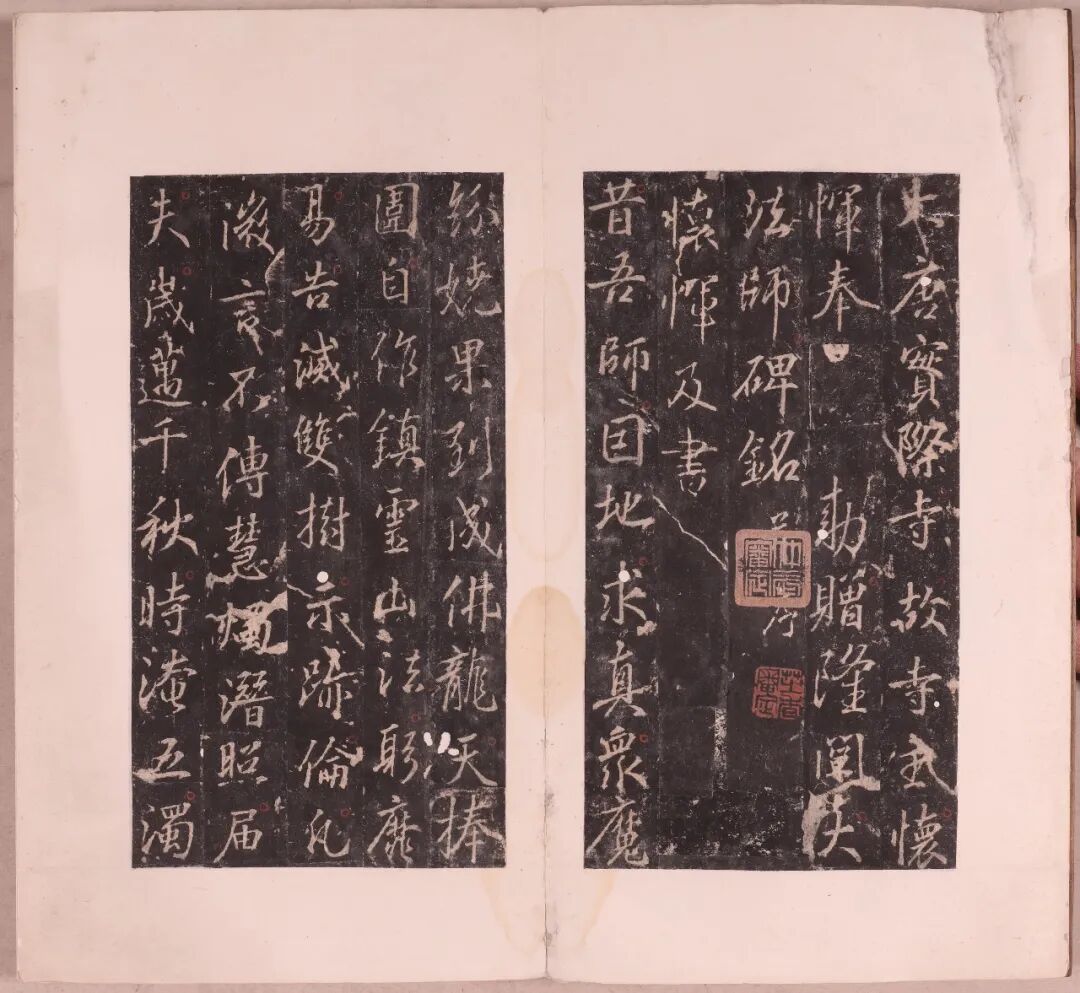 大唐實際寺故寺主懷
惲奉勅贈隆闡大
法師碑銘并序
懷惲及書
昔吾師因地求真衆魔
紛嬈果到成佛龍天捧
圍自作鎮靈山法躬靡
易告滅雙樹示跡倫凡
微言不傳慧燭潛照届
夫歲邁千秋時淹五濁